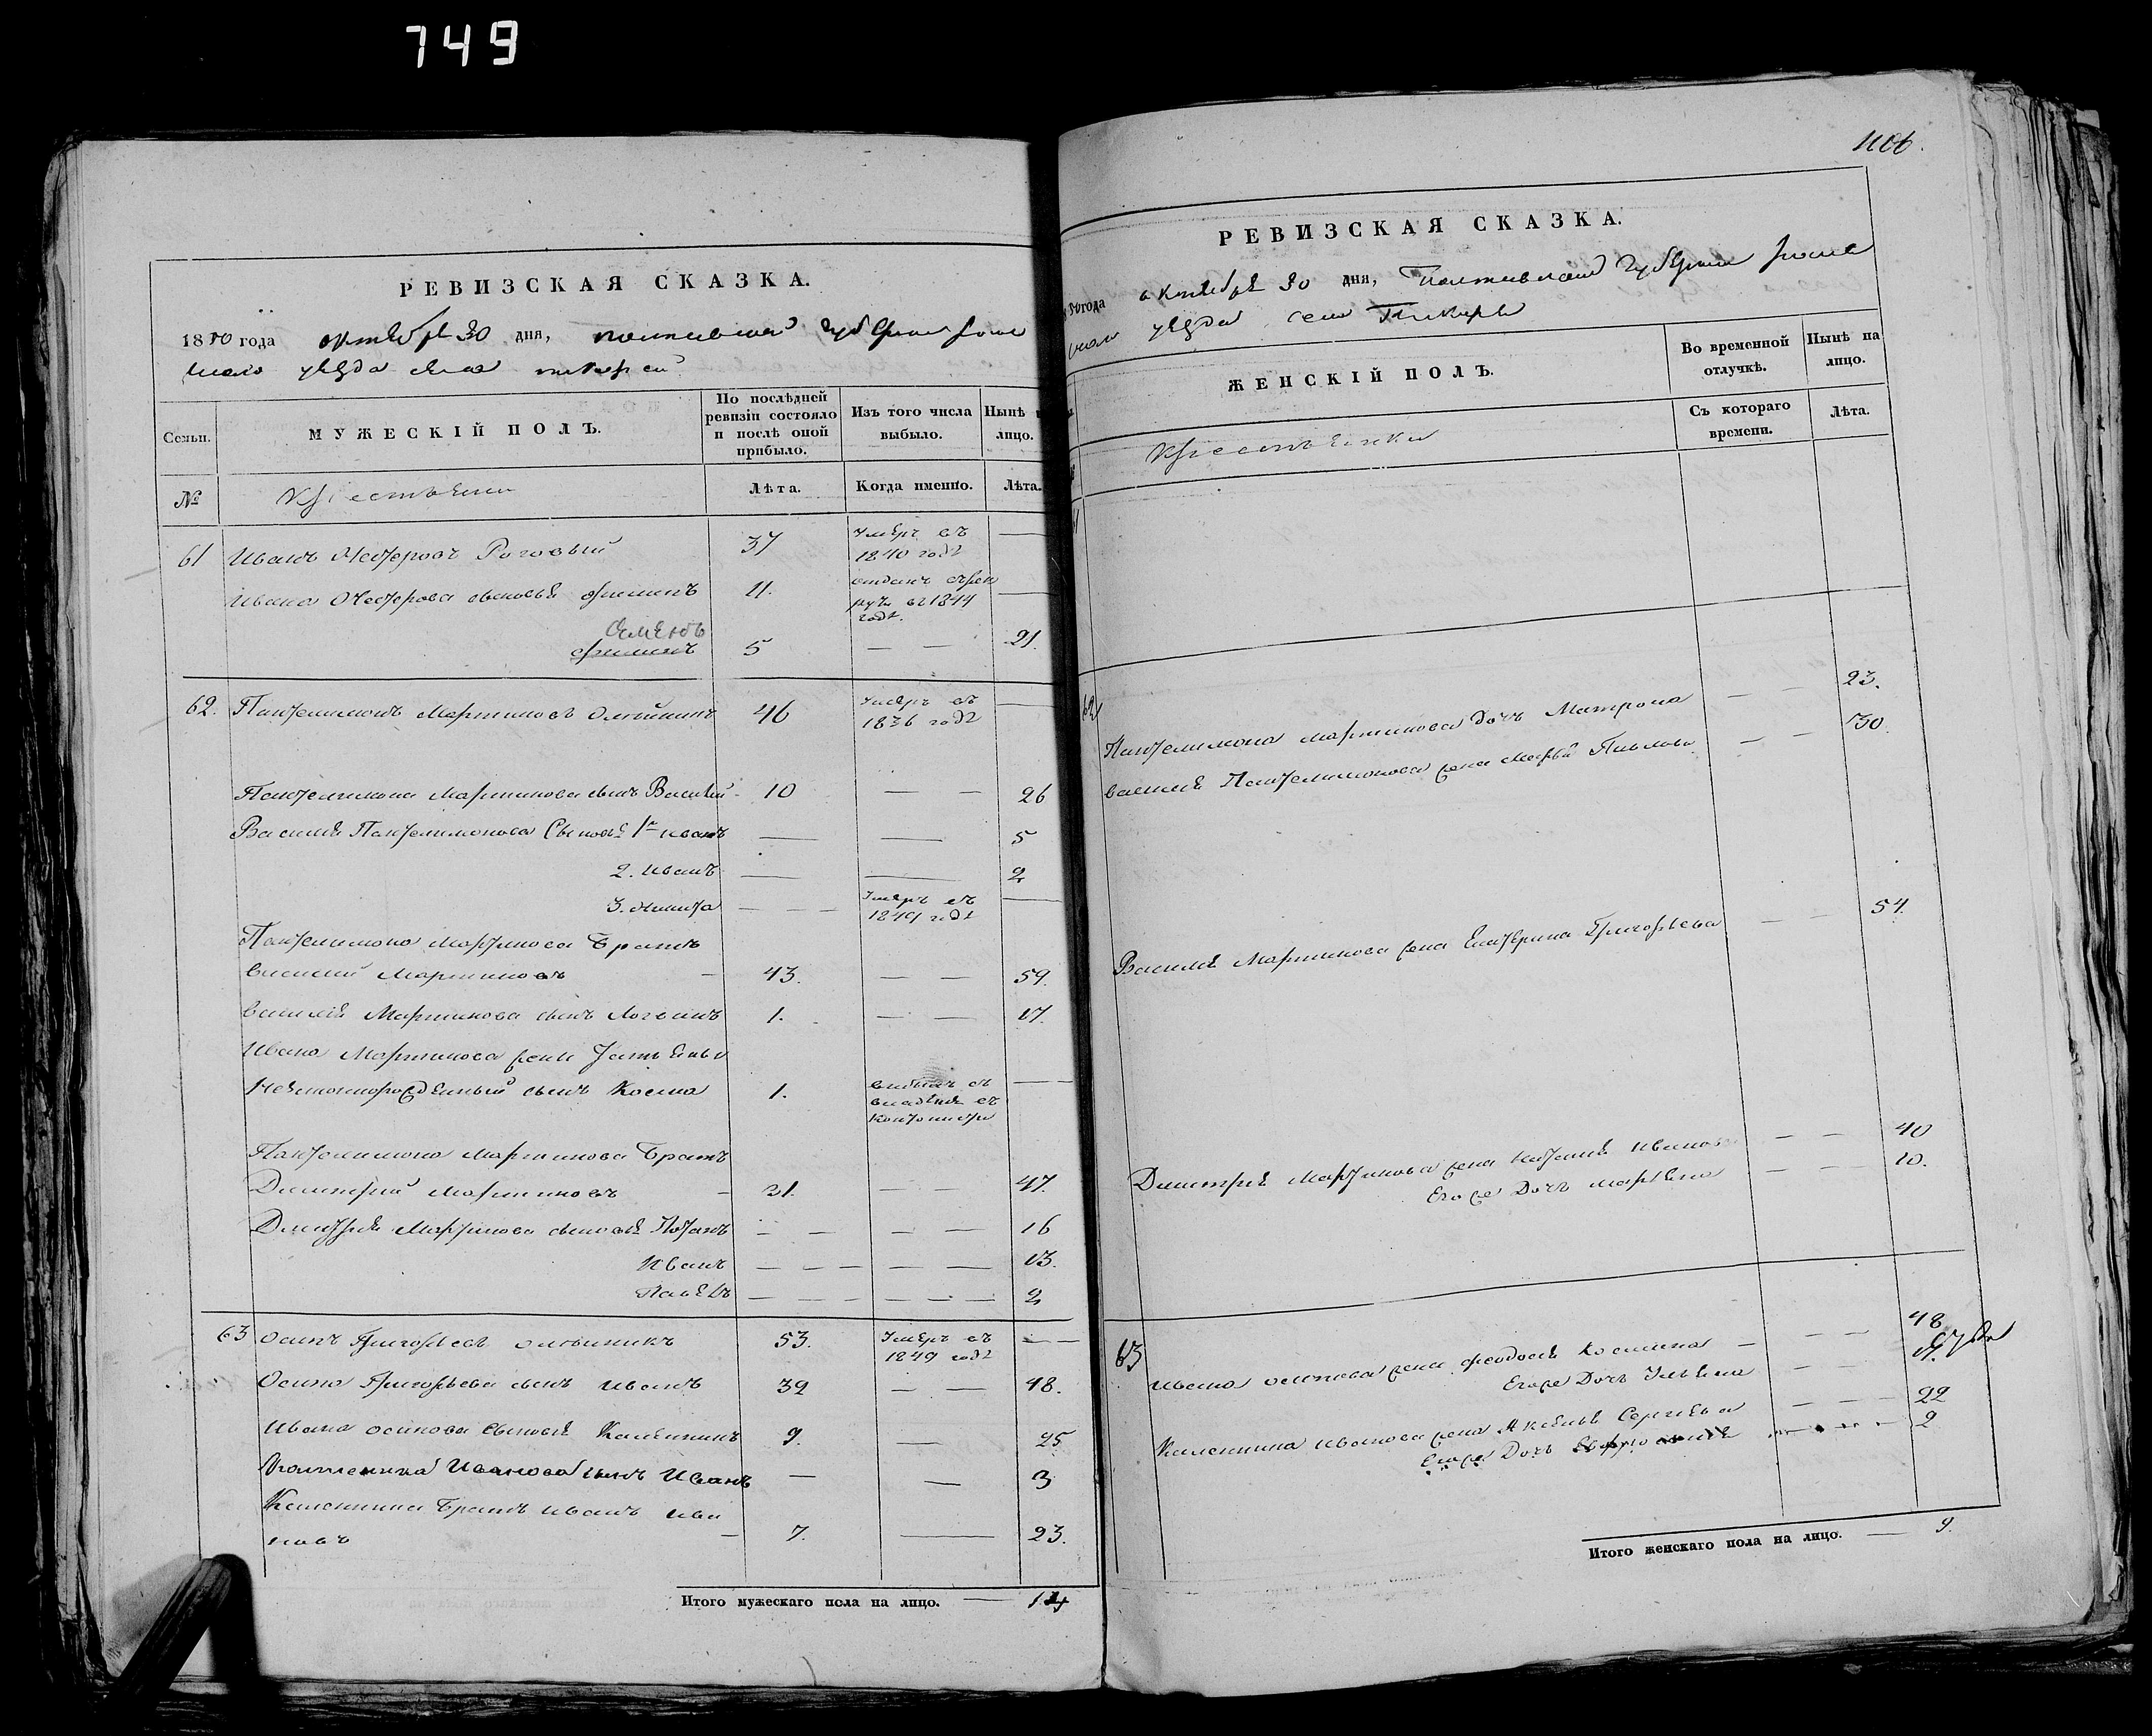 749
РЕВИЗСКАЯ СКАЗКА.
1850 года октября 30 дня, полтавской губернии
уезда села
Семьи.
МУЖЕСКІЙ ПОЛЪ.
По послѣдней ревизіи состояло и послѣ оной прибыло.
Изъ того числа выбыло.
Нынѣ
лицо.
№
крестьяне
Лѣта.
Когда именно.
Лѣта.
61 Иванъ Нестеровъ Роговый 37 Умеръ въ 1840 годѣ —
Ивана Нестерова сыновья 11. отданъ въ рекруты въ 1844 годѣ. —
Семенъ
5 — — 21.
62. Пантелимонъ Мартиновъ Олейникъ 46 Умеръ въ 1836 годѣ —
Пантелимона Мартинова сынъ Василій 10 — — 26
Василія Пантелимонова Сыновья 1й иванъ — — 5
2. иванъ — — 2
3. никита — — — Умеръ въ 1849 годѣ —
Пантелимона Мартинова Братъ
василий Мартиновъ — 43. — — 59.
василія Мартинова сынъ Логвинъ 1. — — 17.
Ивана Мартинова жены Устиньи
сынъ Косма 1. —
Пантелимона Мартинова Братъ
Димитрий Мартиновъ — 31. — — 47.
Дмитрия Мартинова сыновья Потапъ — — — — 16
Иванъ — — — — — 13.
Павелъ — — — — — — 2
63 Осипъ Григорьевъ олейникъ 53. Умеръ въ 1849 годѣ — —
Осипа Григорьева сынъ иванъ 32 — — 48.
Ивана осипова сыновья Каленикъ 9. — 25
Калленика Иванова сынъ Иванъ — — 3
Каленика Братъ иванъ ива
новъ — 7. — 23.
Итого мужескаго пола на лицо. — 14
1106.
РЕВИЗСКАЯ СКАЗКА.
года октября 30 дня, Полтавской Губернии
уезда села
ЖЕНСКІЙ ПОЛЪ.
Во временной отлучкѣ.
Нынѣ на лицо.
Крестьянки
Съ котораго времени.
Лѣта.
62
Пантелимона мартинова дочь Матрона — — 23.
василия Пантелимонова жена Марья Павлова — — 30.
Василія Мартинова жена Екатерина Григорьева — — 54.
Димитрия Мартинова жена Наталия иванова — — 40
Его же Дочь марьяна — — 10.
63
ивана осипова жена феодосія Космина — — — 48
Его же Дочь Ульяна — —
Каленика иванова жена Акилина Сергеева — — — 22
Его же Дочь Евфросиния — — — 2
Итого женскаго пола на лицо. — 9.